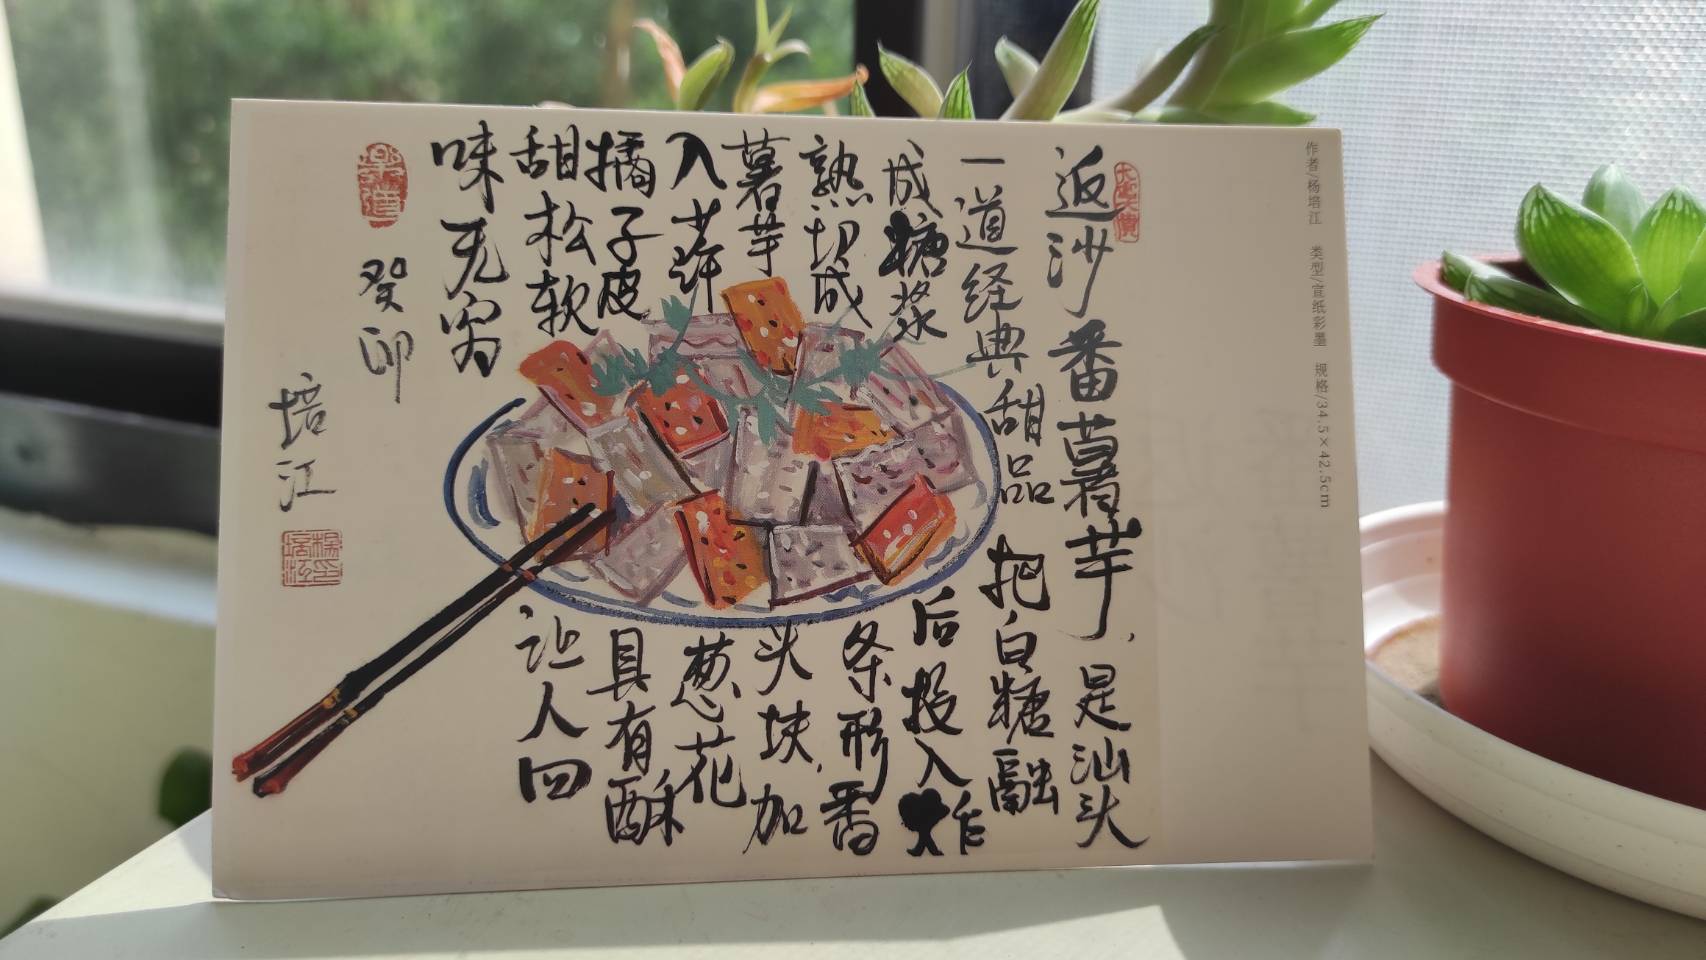 作者/杨培江 类型/宣纸彩墨 规格/34.5×42.5cm
返沙番薯芋,是汕头
一道经典甜品 把白糖融
成糖浆 后投入炸
熟切成 条形番
薯芋 头块,加
入 葱花
橘子皮 具有酥
甜松软 让人回
味无穷
樂道
癸卯
培江
楊培江印